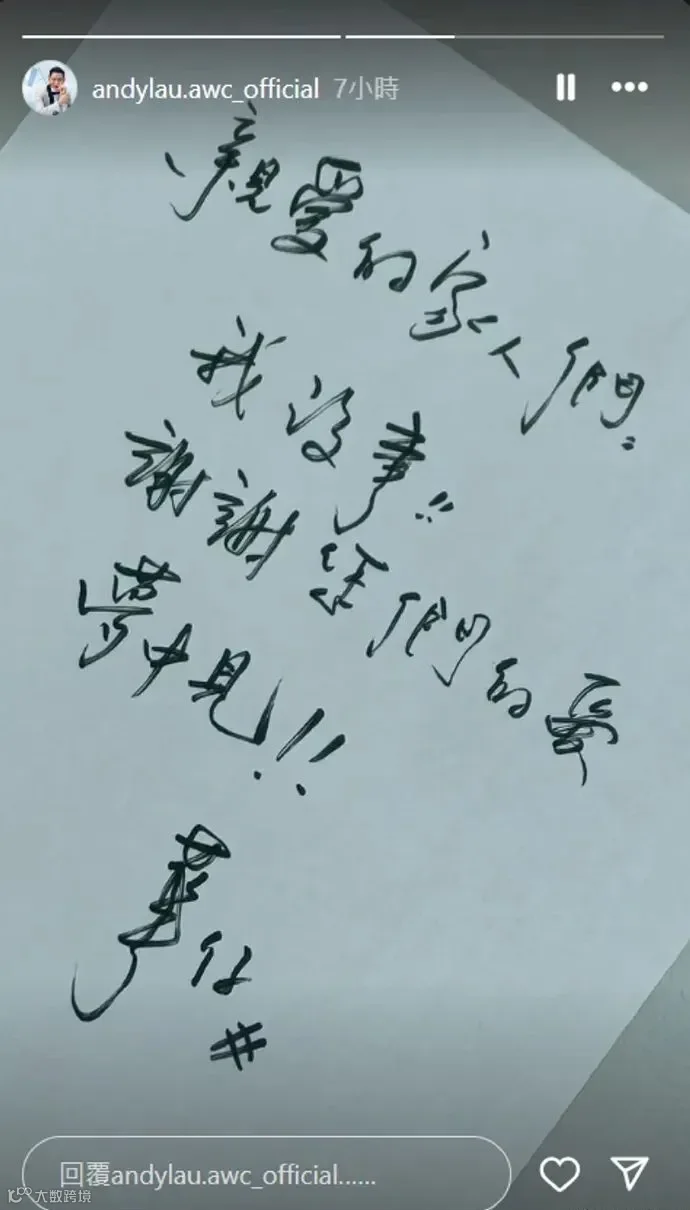 andylau.awc_official 7小時
親愛的家人們:
我沒事!!
謝謝你們的愛
夢中見!!
華仔
#
回覆andylau.awc_official......
大数跨境